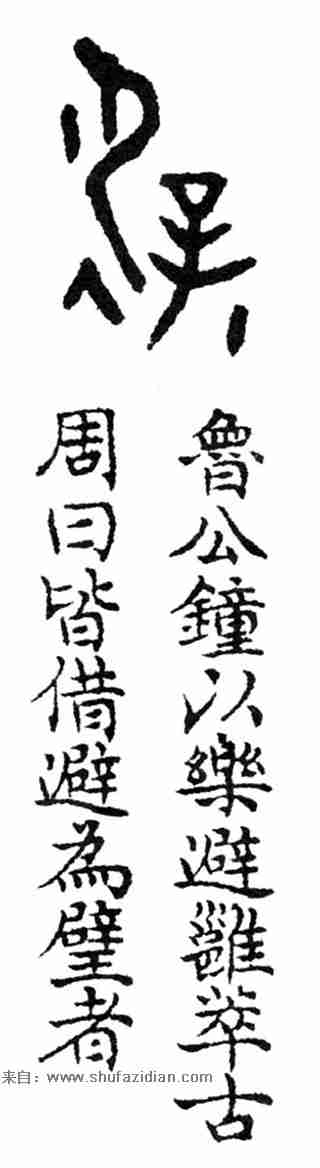 魯公鐘以樂避雝萃古
周曰皆借避為璧者
来自：www.shufazidian.com